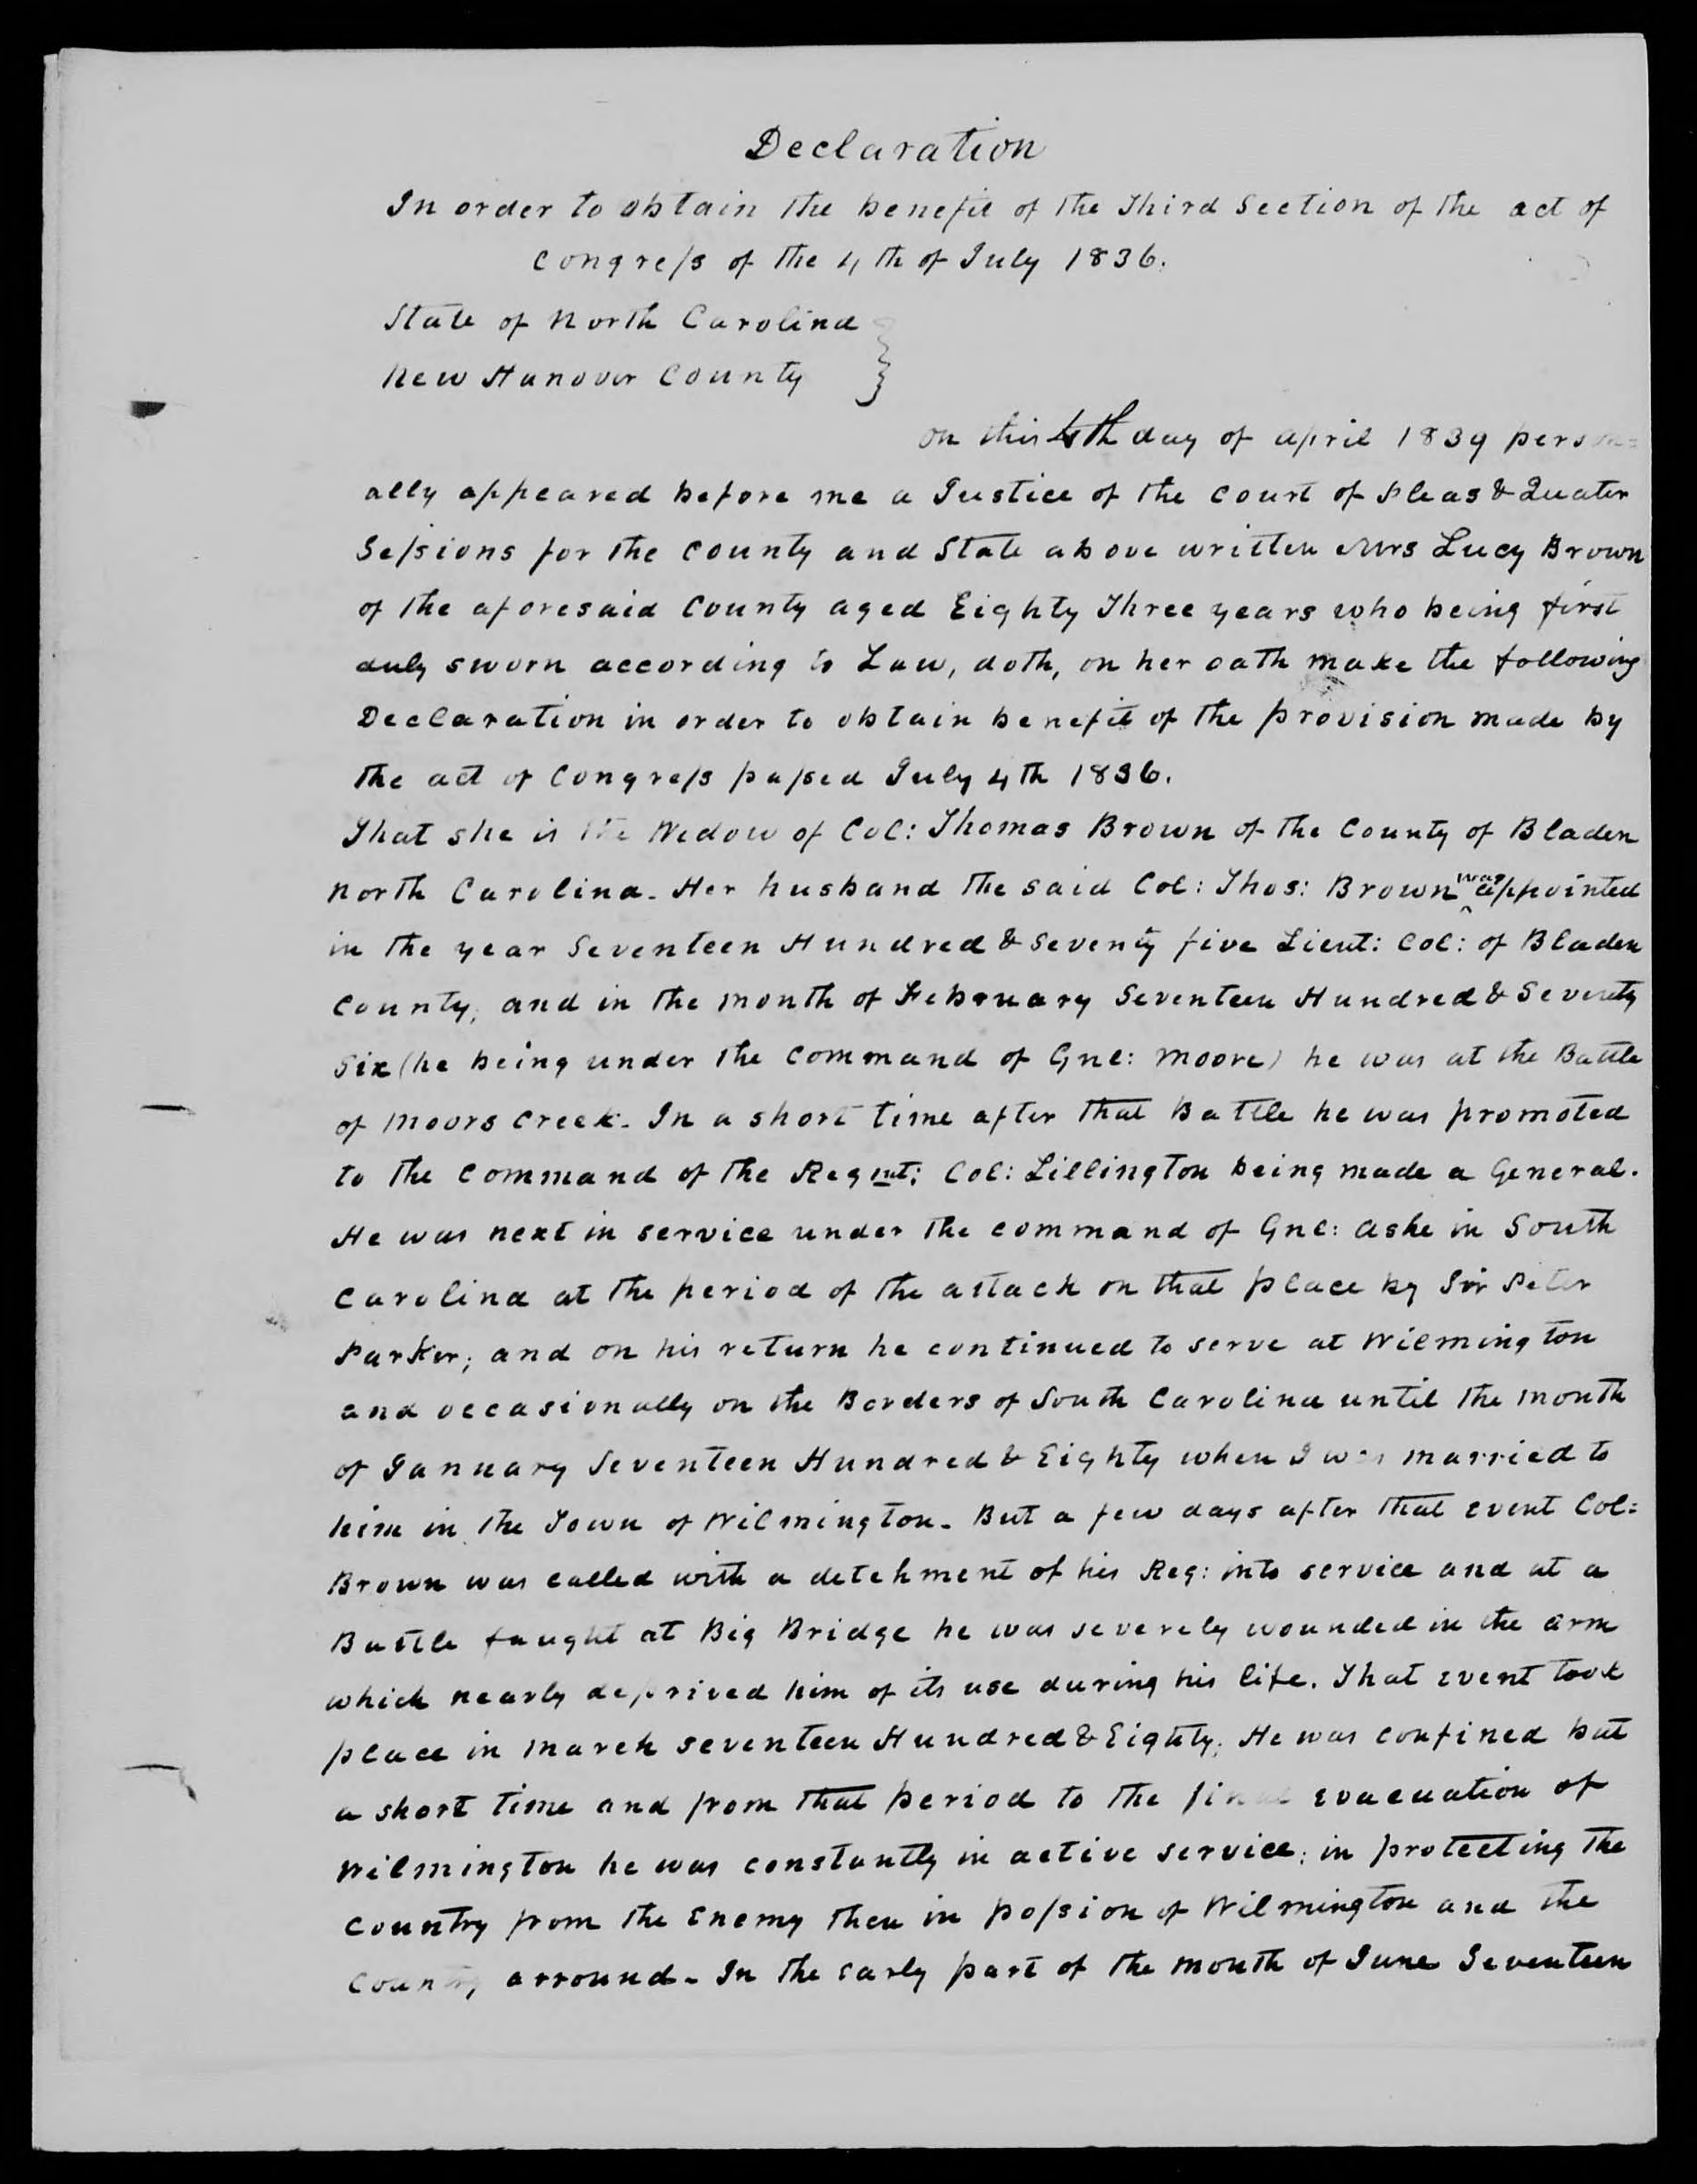 Declaration
In order to obtain the benefit of the Third Section of the act of
Congress of the 4th of July 1836.
State of North Carolina
New Hanover County
on this 4th day of april 1839 person=
ally appeared before me a Justice of the Court of Pleas & Quater
Sessions for the County and State above written Mrs Lucy Brown
of the aforesaid County aged Eighty Three years who being first
duly sworn according to Law, doth, on her oath make the following
Declaration in order to obtain benefit of the provision made by
the act of Congress passed July 4th 1836.
That she is the Wedow of Col: Thomas Brown of the County of Bladen
North Carolina. Her husband the said Col: Thos: Brown was appointed
in the year Seventeen Hundred & Seventy five Lieut: Col: of Bladen
County, and in the month of February Seventeen Hundred & Seventy
Six (he being under the command of Gnl: Moore) he was at the Battle
of Moors Creek. In a short time after that Battle he was promoted
to the command of the Regmt: Col: Lillington being made a General.
He was next in service under the command of Gnl: Ashe in South
Carolina at the period of the attack on that place by Sir Peter
Parker; and on his return he continued to serve at Wilmington
and occasionally on the Borders of South Carolina until the month
of January Seventeen Hundred & Eighty when I was married to
him in the Town of Wilmington. But a few days after that event Col:
Brown was called with a detehment of his Reg: into service and at a
Battle faught at Big Bridge he was severely wounded in the arm
which nearly deprived him of its use during his life. That event took
place in march seventeen Hundred & Eighty. He was confined but
a short time and from that period to the final evacuation of
Wilmington he was constantly in active service; in protecting the
country from the Enemy then in possion of Wilmington and the
country arround. In the early part of the month of June Seventeen